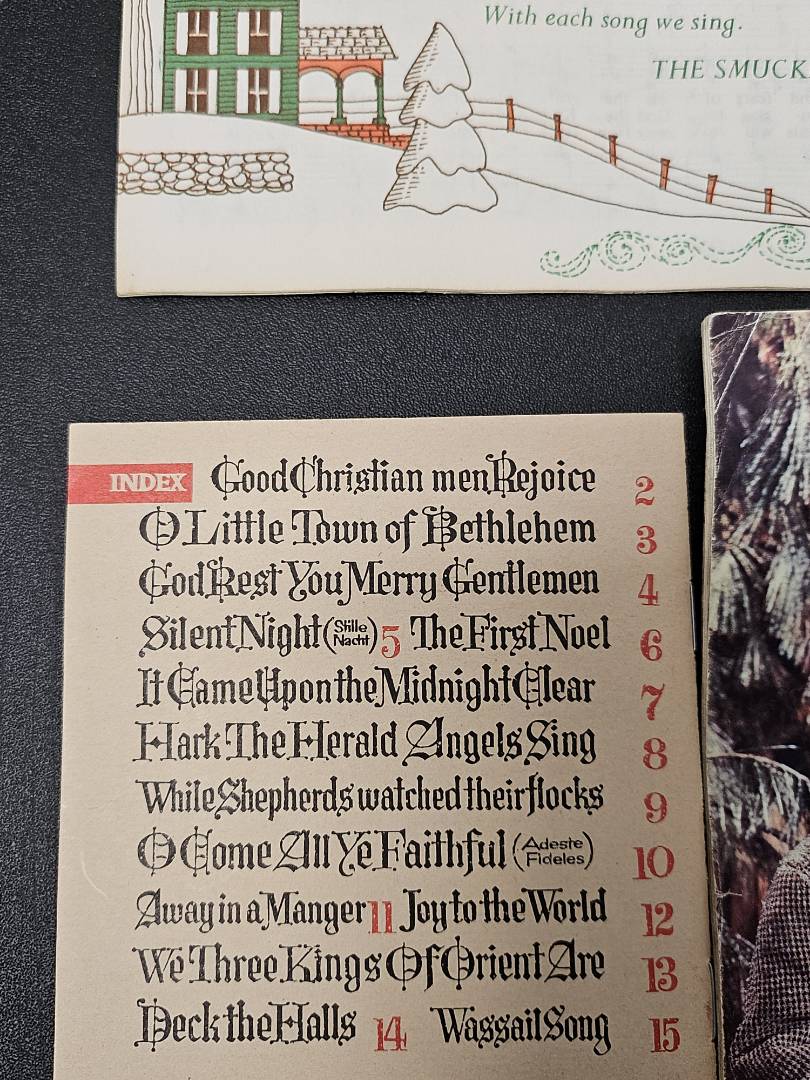 With each song we sing.
THE SMUCK
INDEX Good Christian men Rejoice 2
O Little Town of Bethlehem 3
God Rest You Merry Gentlemen 4
Silent Night (Stille Nacht) 5 The First Noel 6
It Came Upon the Midnight Clear 7
Hark The Herald Angels Sing 8
While Shepherds watched their flocks 9
O Come All Ye Faithful (Adeste Fideles) 10
Away in a Manger 11 Joy to the World 12
We Three Kings Of Orient Are 13
Deck the Halls 14 Wassail Song 15